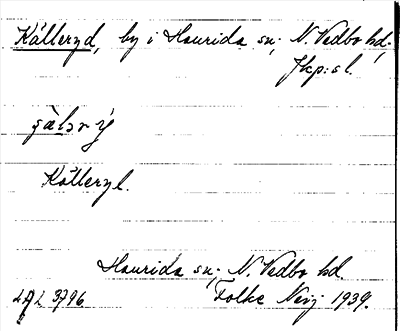 Kålleryd, by i Haurida sn; N. Vedbo hd;
Jkp:s l.
Kålleryl.
Haurida sn; N. Vedbo hd.
Folke Neij 1939.